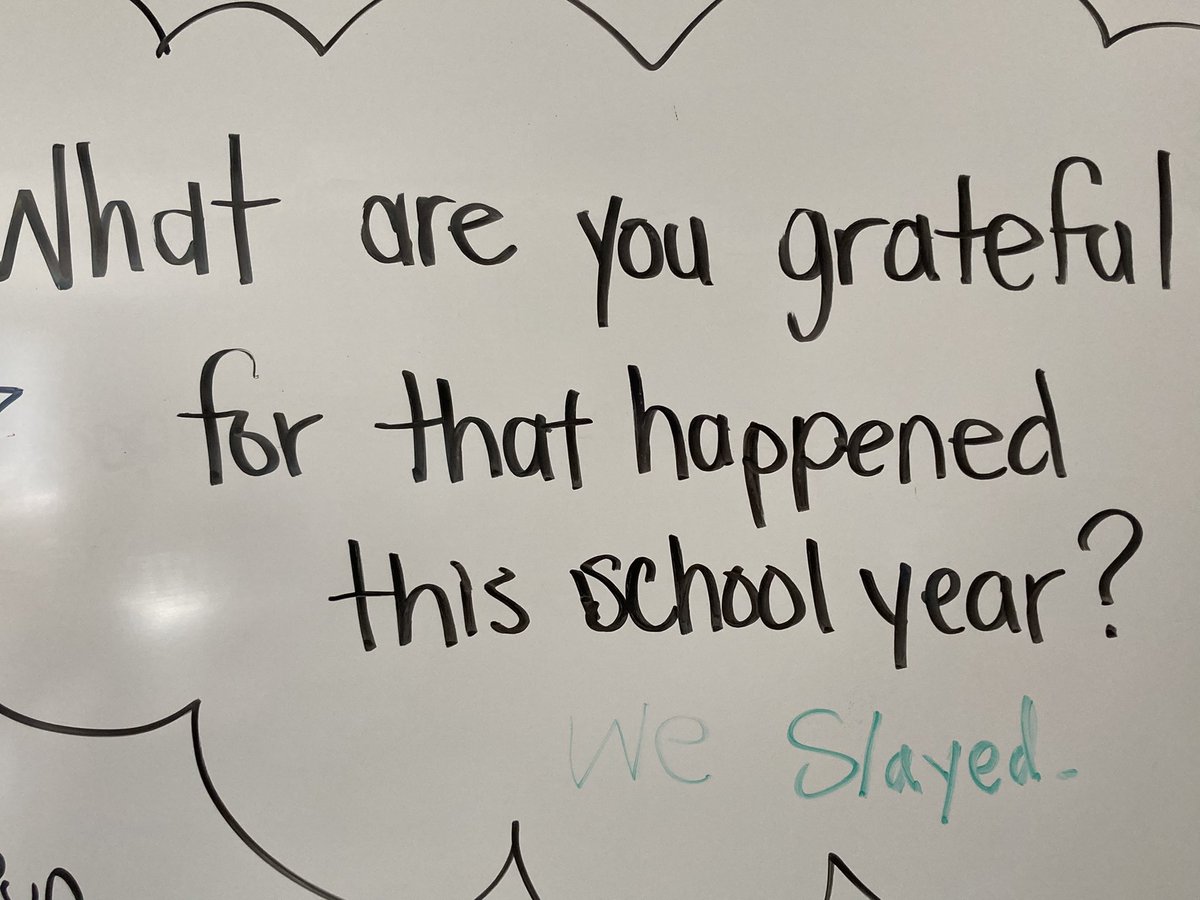 What are you grateful
for that happened
this school year?
We Slayed.